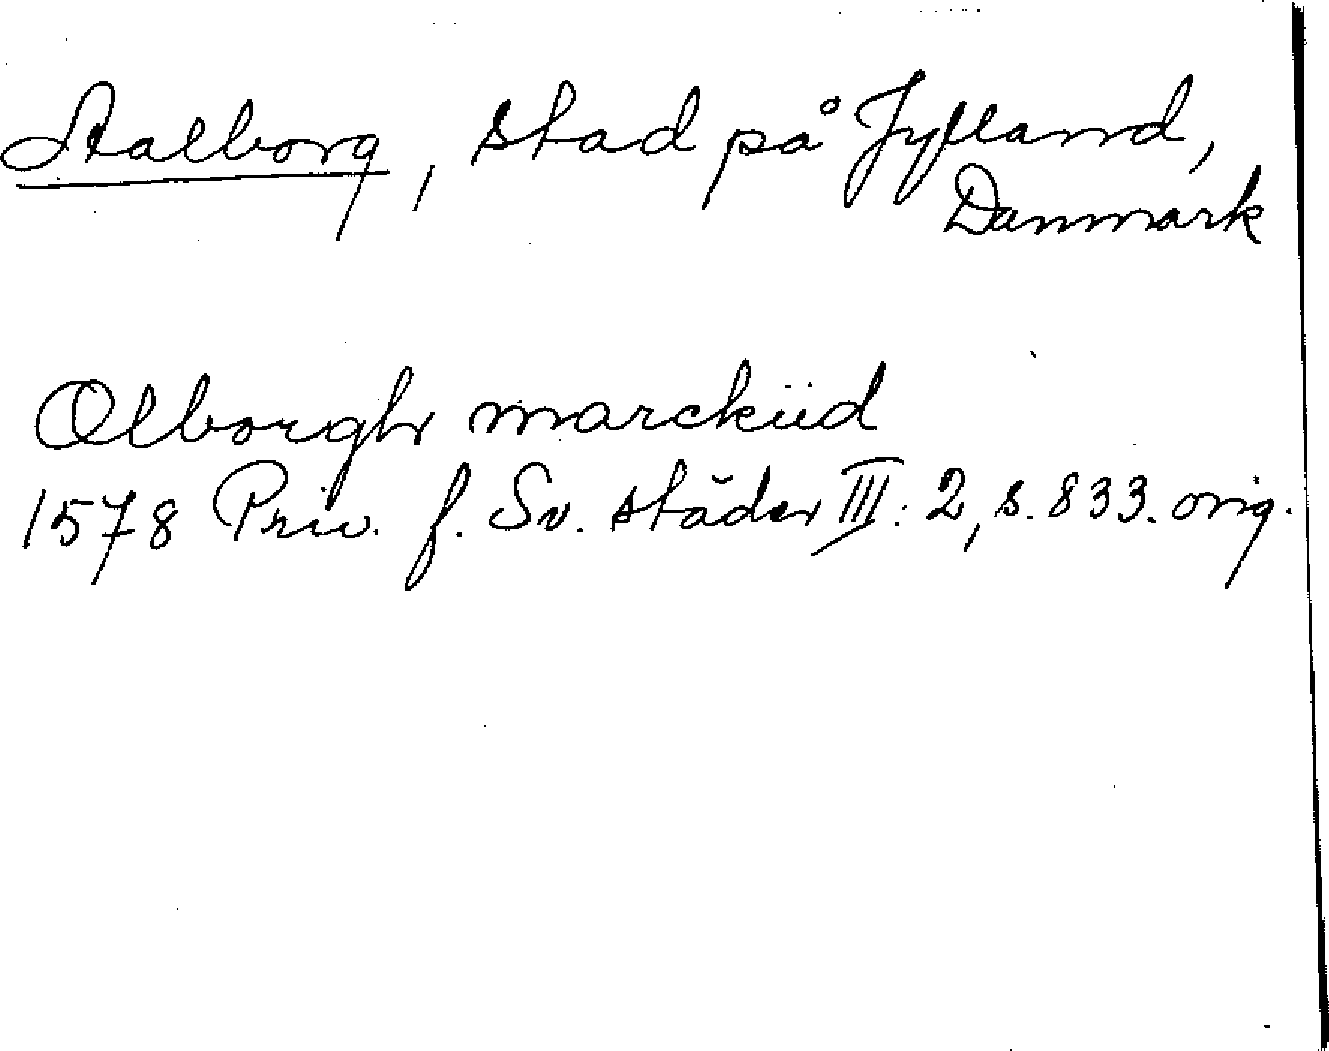 Aalborg, stad på Jylland,
Danmark
Olborgh marckiid
1578 Priv. f. Sv. städer III: 2, s. 833. orig.